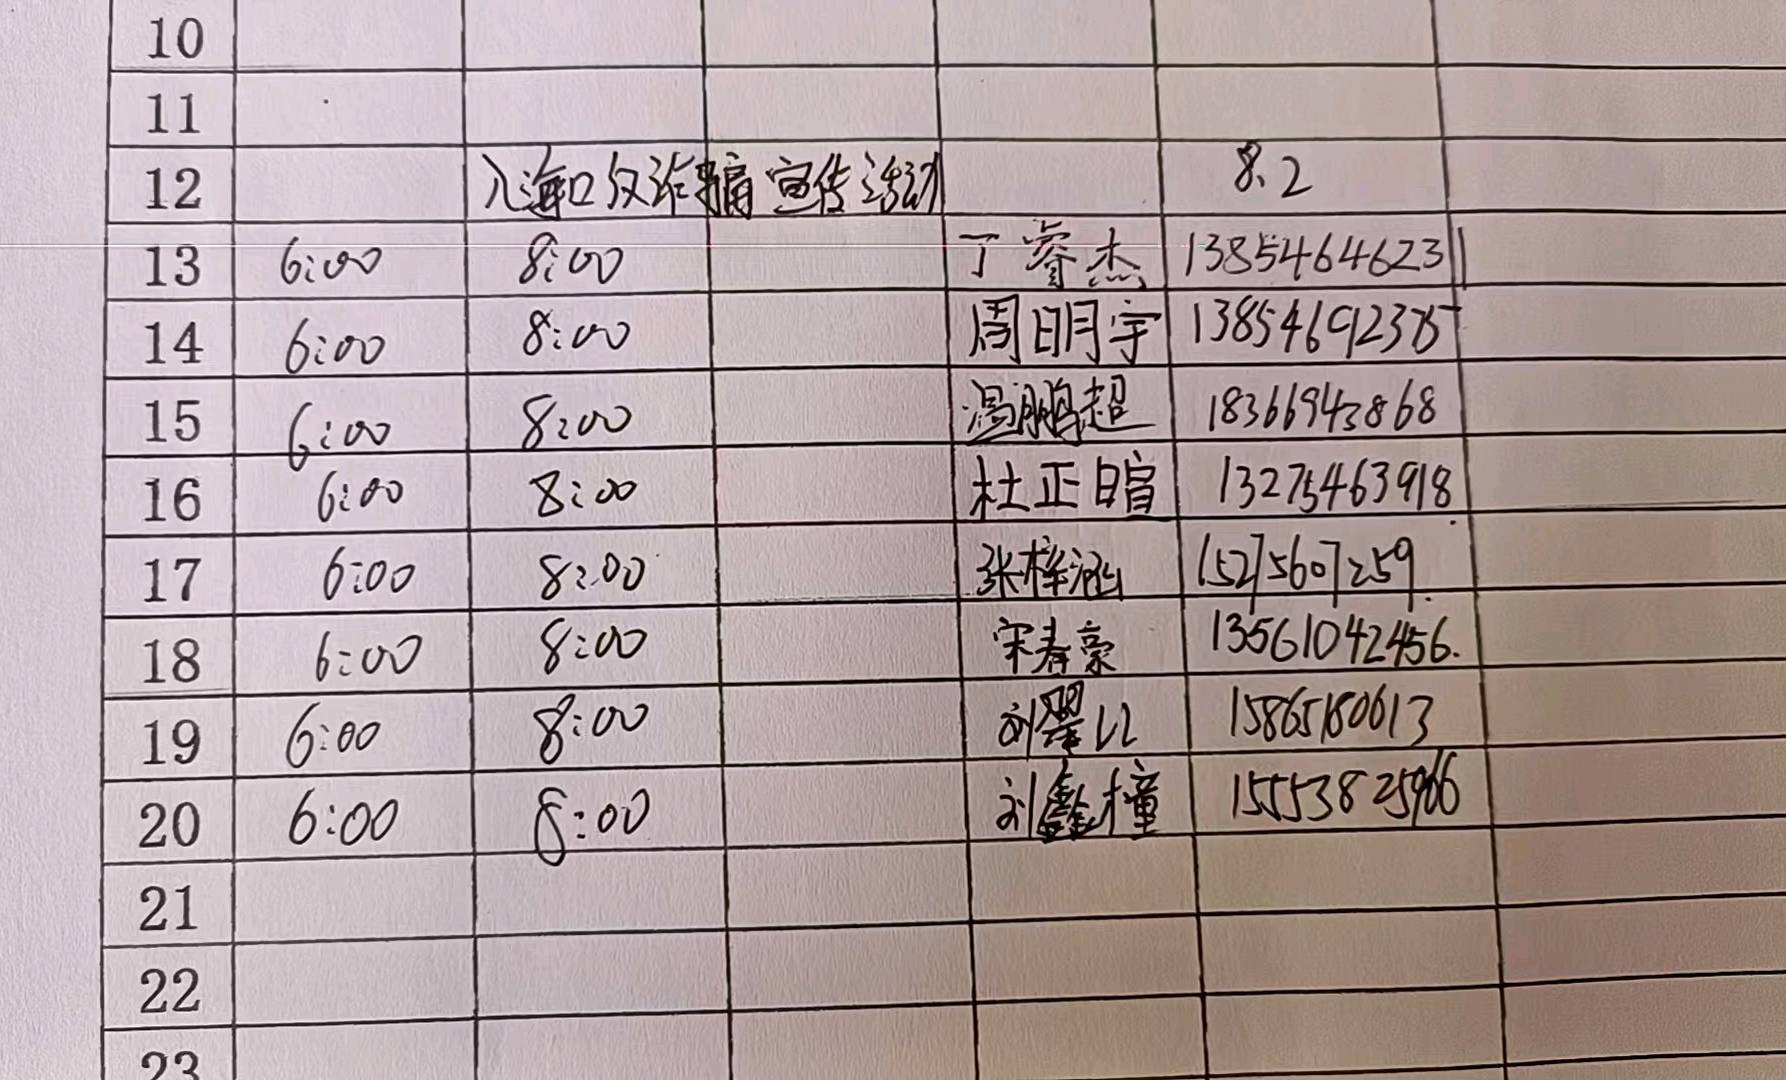 10
11
12 入海口反诈骗宣传活动 8.2
13 6:00 8:00 丁睿杰 13854646231
14 6:00 8:00 周明宇 13854692375
15 6:00 8:00 温鹏超 18366943868
16 6:00 8:00 杜正暄 13275463918
17 6:00 8:00 张梓涵 15275607259
18 6:00 8:00 宋春豪 13561042456.
19 6:00 8:00 刘 15865180613
20 6:00 8:00 刘鑫橦 15553825966
21
22
23